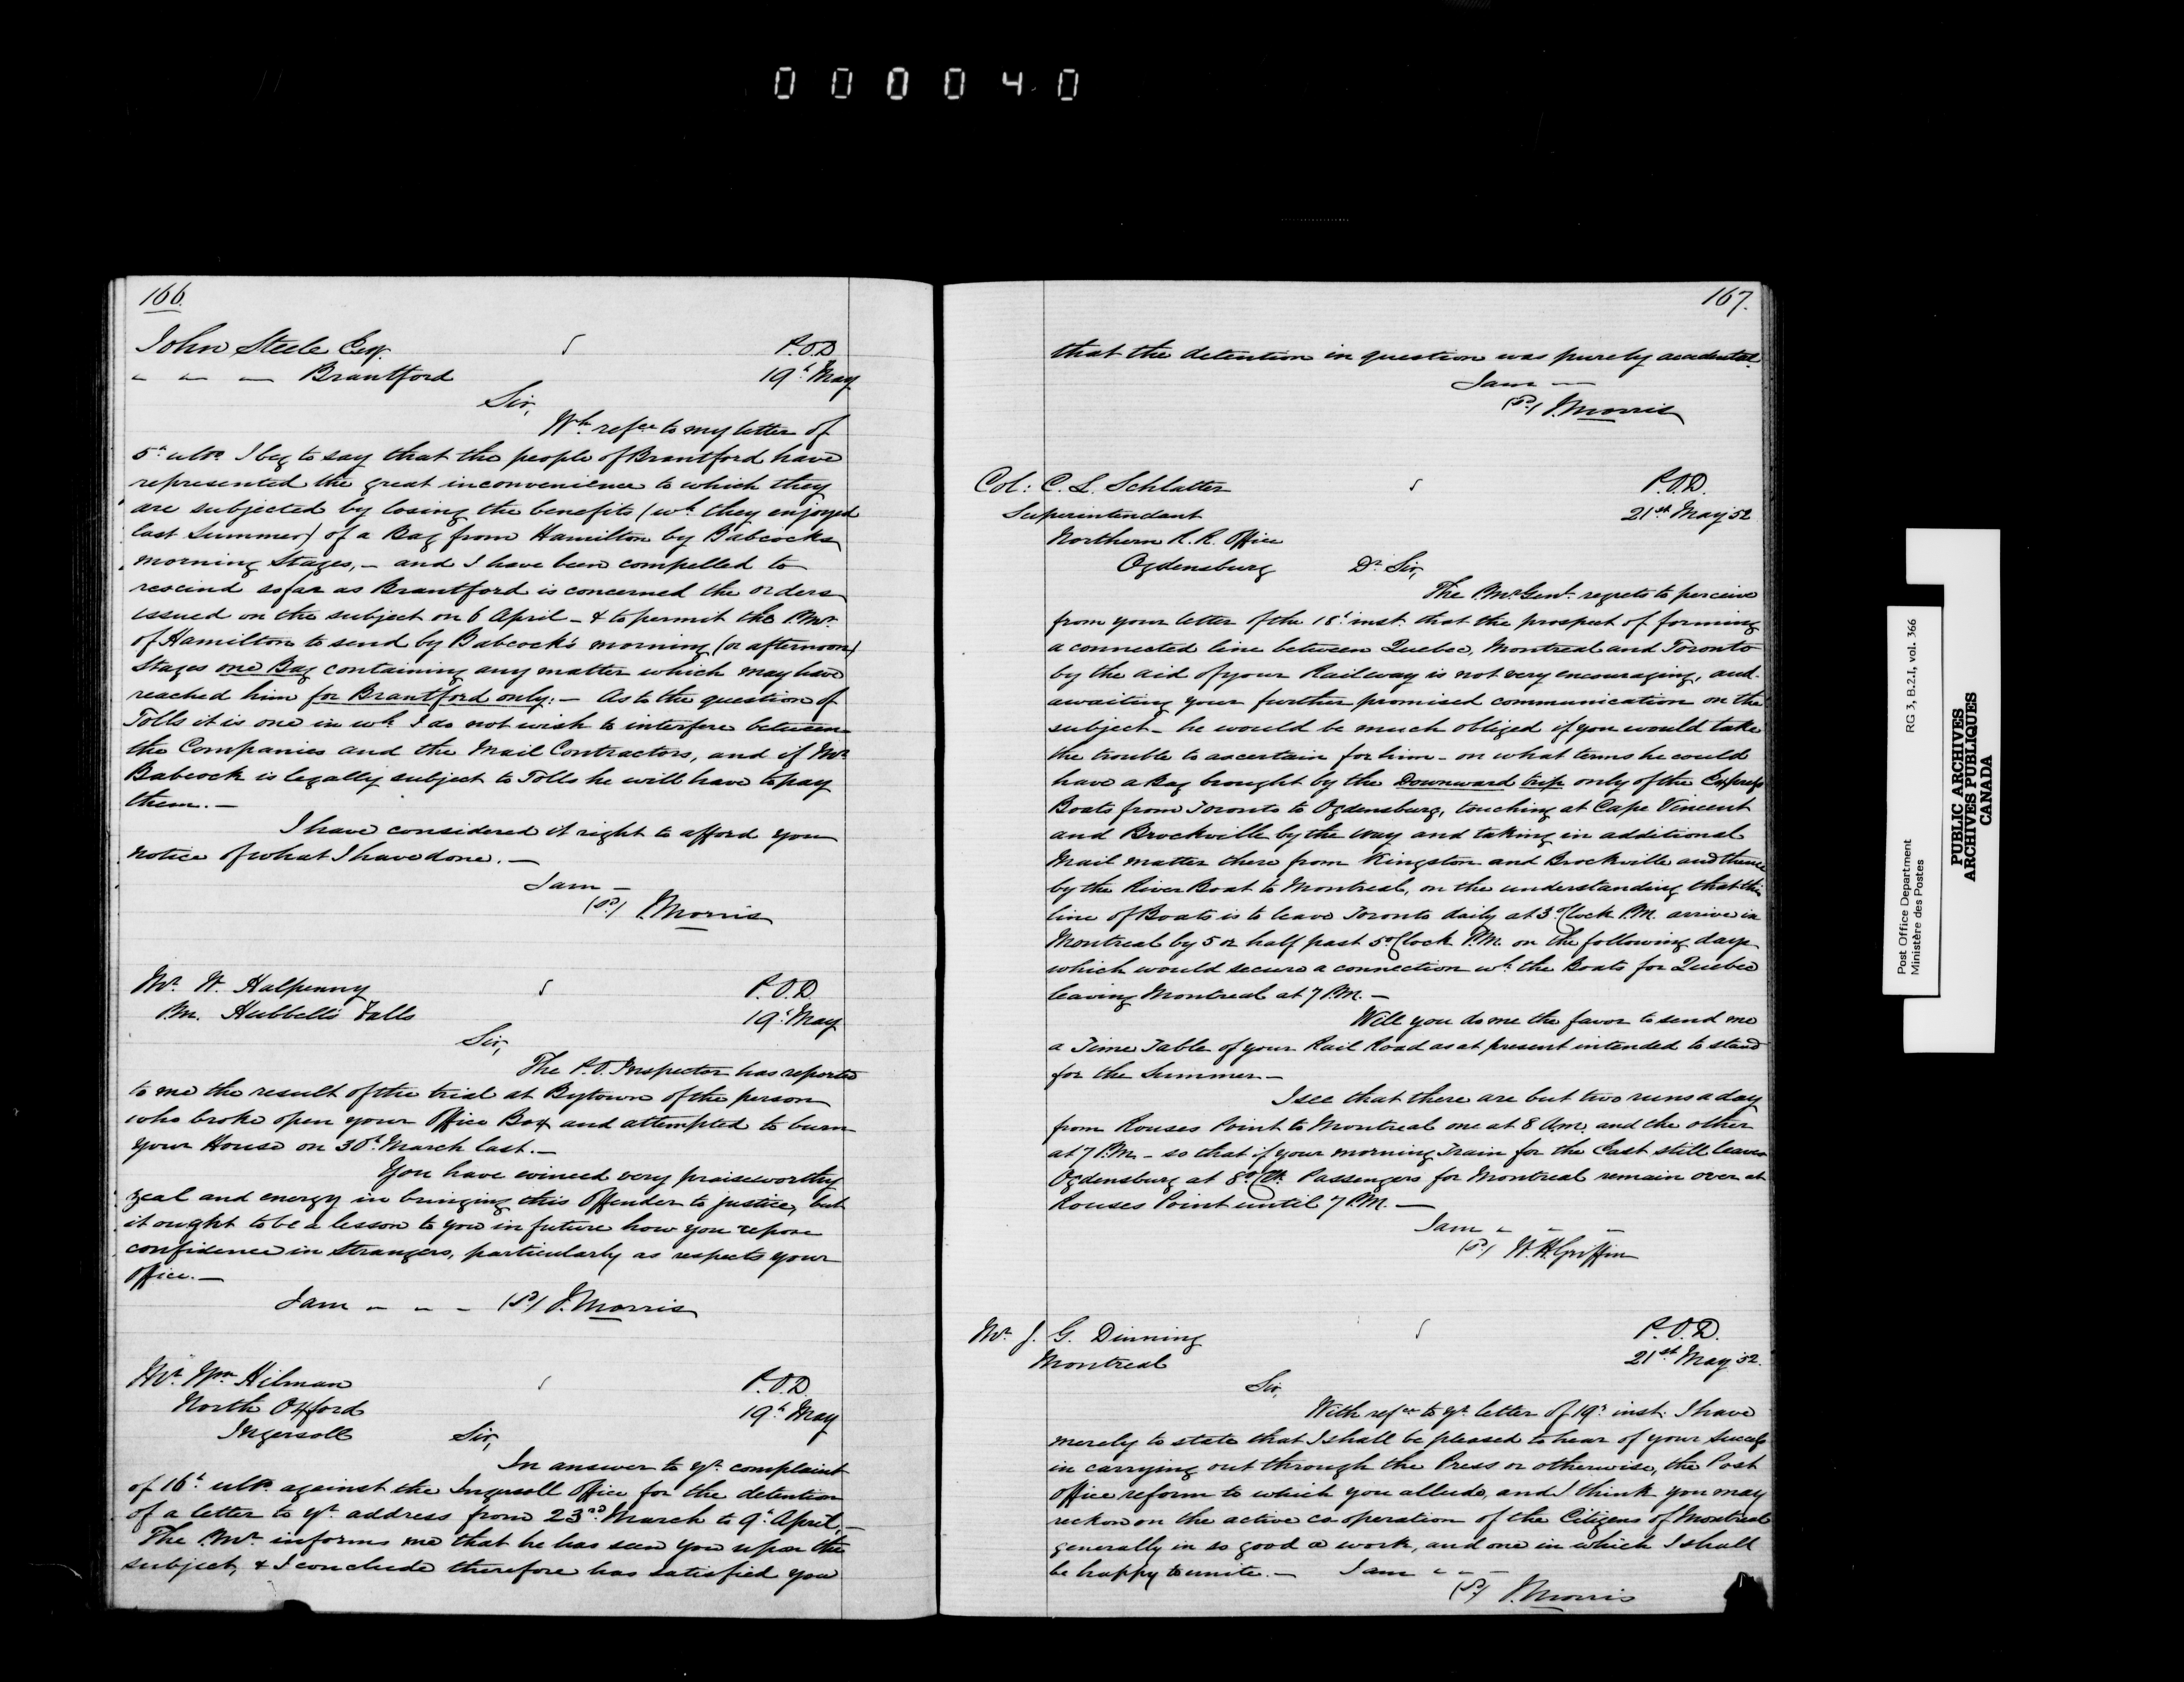 000040
166.
John Steele Esq. P.O.D
" " " Brantford 19th May
Sir,
Wh. refce to my letter of
5th ulto. I beg to say that the people of Brantford have
represented the great inconvenience to which they
are subjected by losing the benefits (wh. they enjoyed
last Summer) of a Bag from Hamilton by Babcocks
morning Stages, - and I have been compelled to
rescind so far as Brantford is concerned the orders
issued on the subject on 6 April - & to permit the P.Mr.
of Hamilton to send by Babcock's morning (or afternoon)
Stages one Bag containing any matter which may have
reached him for Brantford only: - As to the question of
Tolls it is one in wh. I do not wish to interfere between
the Companies and the Mail Contractors, and if Mr.
Babcock is legally subject to Tolls he will have to pay
them. -
I have considered it right to afford you
notice of what I have done. -
I am -
(Sd) J. Morris
Mr. W. Halpenny P.O.D.
P.M. Hubbell's Falls 19th May
Sir,
The P.O. Inspector has reported
to me the result of the trial at Bytown of the person
who broke open your Office Box and attempted to burn
your House on 30th March last. -
You have evinced very praiseworthy
zeal and energy in bringing this Offender to justice, but
it ought to be a lesson to you in future how you repose
confidence in Strangers, particularly as respects your
Office. -
I am - - - (Sd) J. Morris
Mr. Wm. Hilman P.O.D.
North Oxford 19th May
Ingersoll Sir,
In answer to yr. complaint
of 16th ulto. against the Ingersoll Office for the detention
of a letter to yr. address from 23rd March to 9th April, -
The P.Mr. informs me that he has seen you upon the
subject, & I conclude therefore has satisfied you
167.
that the detention in question was purely accidental.
I am -
(Sd) J. Morris
Col: C. L. Schlatter P.O.D.
Superintendant 21st May 52
Northern R. R. Office
Ogdensburg Dr. Sir,
The P.Mr. Genl. regrets to perceive
from your letter of the 18th inst. that the prospect of forming
a connected line between Quebec, Montreal and Toronto
by the aid of your Railway is not very encouraging, and
awaiting your further promised communication on the
subject - he would be much obliged if you would take
the trouble to ascertain for him - on what terms he could
have a Bag brought by the Downward trip only of the Express
Boats from Toronto to Ogdensburg, touching at Cape Vincent
and Brockville by the way and taking in additional
Mail matter there from Kingston and Brockville and thence
by the River Boat to Montreal, on the understanding that this
line of Boats is to leave Toronto daily at 3 o'Clock P.M. arrive in
Montreal by 5 or half past 5 o'Clock P.M. on the following day
which would secure a connection wh. the Boats for Quebec
leaving Montreal at 7 P.M. -
Will you do me the favor to send me
a Time Table of your Rail Road as at present intended to stand
for the Summer. -
I see that there are but two runs a day
from Rouses Point to Montreal one at 8 A.M. and the other
at 7 P.M. - so that if your morning Train for the East still leaves
Ogdensburg at 8 o'Ck. Passengers for Montreal remain over at
Rouses Point until 7 P.M. -
I am - - -
(Sd) W. H. Griffin
Mr. J. G. Dinning P.O.D.
Montreal 21st May 52.
Sir,
With refce to yr. letter of 19th inst. I have
merely to state that I shall be pleased to hear of your success
in carrying out through the Press or otherwise, the Post
Office reform to which you allude, and I think you may
reckon on the active co operation of the Citizens of Montreal
generally in so good a work, and one in which I shall
be happy to unite. - I am - - -
(Sd) J. Morris
Post Office Department RG 3, B.2.I, vol. 366
Ministère des Postes
PUBLIC ARCHIVES
ARCHIVES PUBLIQUES
CANADA